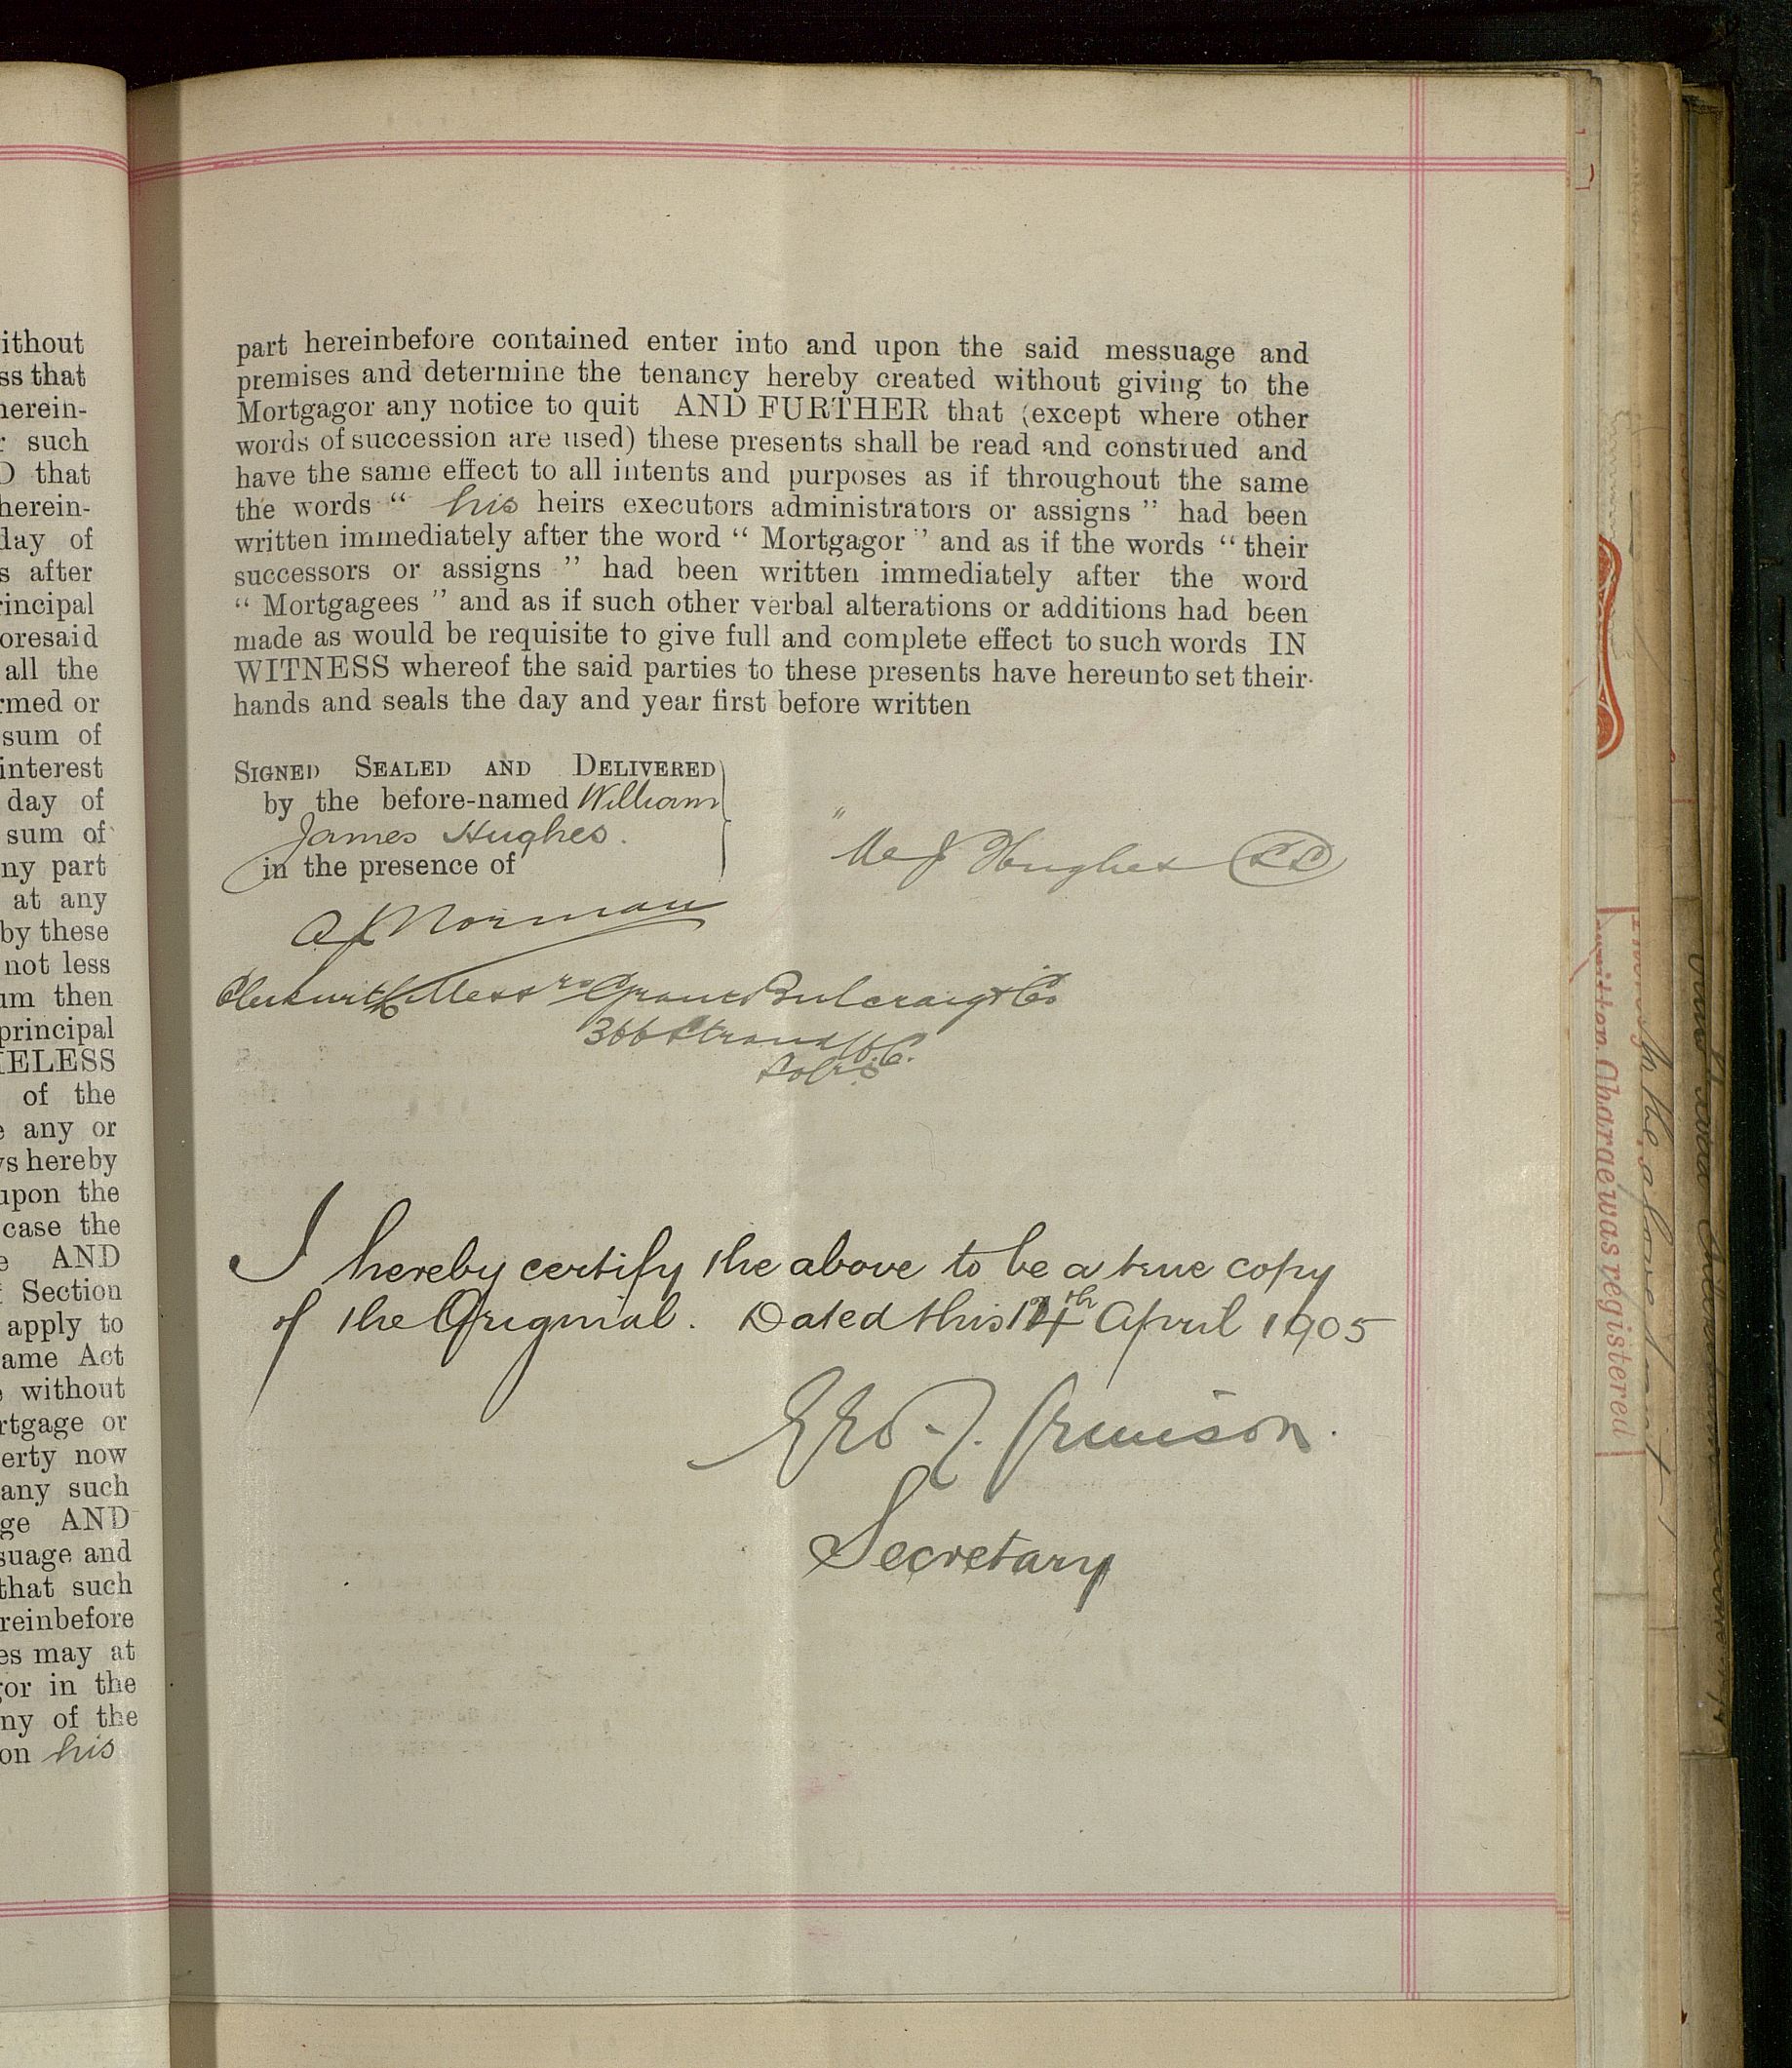 ithout
ss that
herein-
such
D that
herein-
day of
s after
rincipal
oresaid
all the
rmed or
sum of
interest
day of
sum of
ny part
at any
by these
not less
um then
principal
ELESS
of the
e any or
ys hereby
upon the
case the
e AND
Section
apply to
ame Act
without
rtgage or
erty now
any such
ge AND
suage and
that such
reinbefore
es may at
gor in the
ny of the
on his
part hereinbefore contained enter into and upon the said messuage and
premises and determine the tenancy hereby created without giving to the
Mortgagor any notice to quit AND FURTHER that (except where other
words of succession are used) these presents shall be read and construed and
have the same effect to all intents and purposes as if throughout the same
the words " his heirs executors administrators or assigns " had been
written immediately after the word " Mortgagor " and as if the words " their
successors or assigns " had been written immediately after the word
" Mortgagees " and as if such other verbal alterations or additions had been
made as would be requisite to give full and complete effect to such words IN
WITNESS whereof the said parties to these presents have hereunto set their
hands and seals the day and year first before written
SIGNED SEALED AND DELIVERED
by the before-named William
James Hughes.
in the presence of
W J Hughes LS
A J Norman
Clerk with Messrs Grant Bulcraig & Co
366 Strand W.C.
Solrs
I hereby certify the above to be a true copy
of the Original. Dated this 14th April 1905
Geo. J.
Secretary
Charge was registered